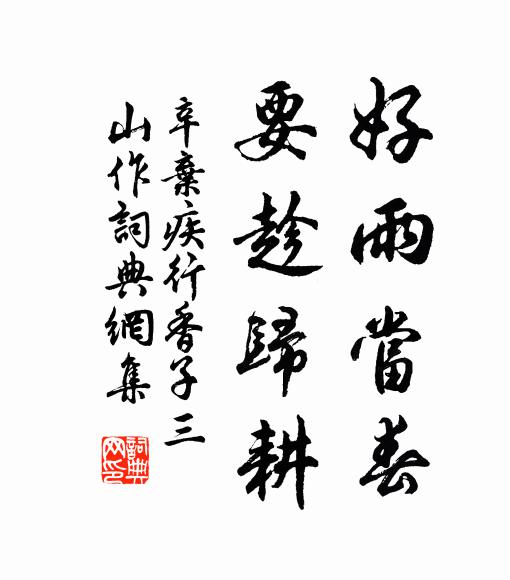 好雨當春
要趁歸耕
辛棄疾行香子三
山作詞典網集
詞典網印